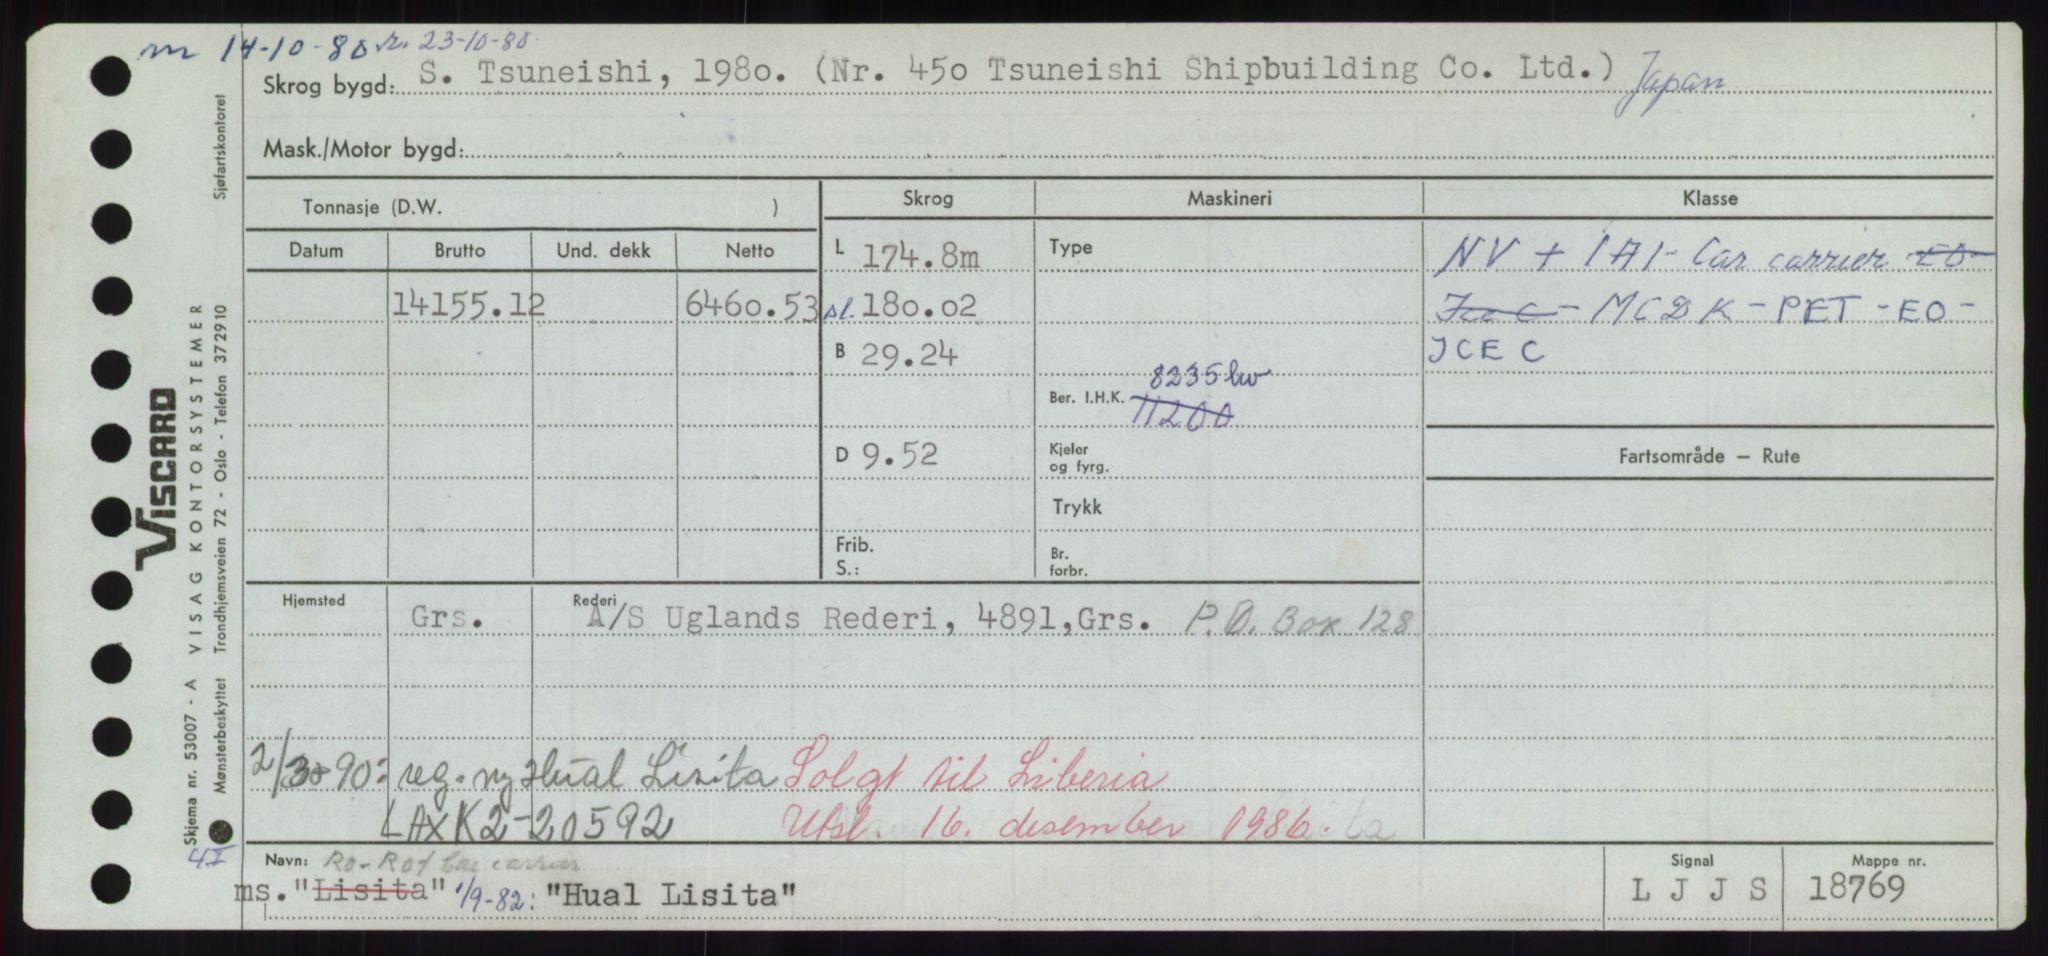 m 14-10-80 r. 23-10-80
Skrog bygd: S. Tsuneishi, 1980. (Nr. 450 Tsuneishi Shipbuilding Co. Ltd.) Japan
Mask./Motor bygd:
Tonnasje (D.W. )
Skrog
Maskineri
Klasse
Datum Brutto Und. dekk Netto
14155.12 6460.53
L 174.8m
sl. 180.02
B 29.24
D 9.52
Frib.
S.:
Type
8235 kw
Ber. I.H.K. 11200
Kjeler
og fyrg.
Trykk
Br.
forbr.
NV + 1A1- Car carrier EO
Ice C - MCDK - PET - EO -
ICE C
Fartsområde — Rute
Hjemsted Grs. Rederi A/S Uglands Rederi, 4891,Grs. P.O. Box 128
2/3-90: reg. ny Hual Lisita Solgt til Liberia
LAXK2-20592 Utsl. 16. desember 1986.
Navn: Ro-Ro/ Car carrier
ms. "Lisita" 1/9-82: "Hual Lisita"
Signal
L J J S
Mappe nr.
18769
VISCARD
Skjema nr. 53007 - A VISAG KONTORSYSTEMER
Mønsterbeskyttet Trondhjemsveien 72 - Oslo - Telefon 372910 Sjøfartskontoret
4I